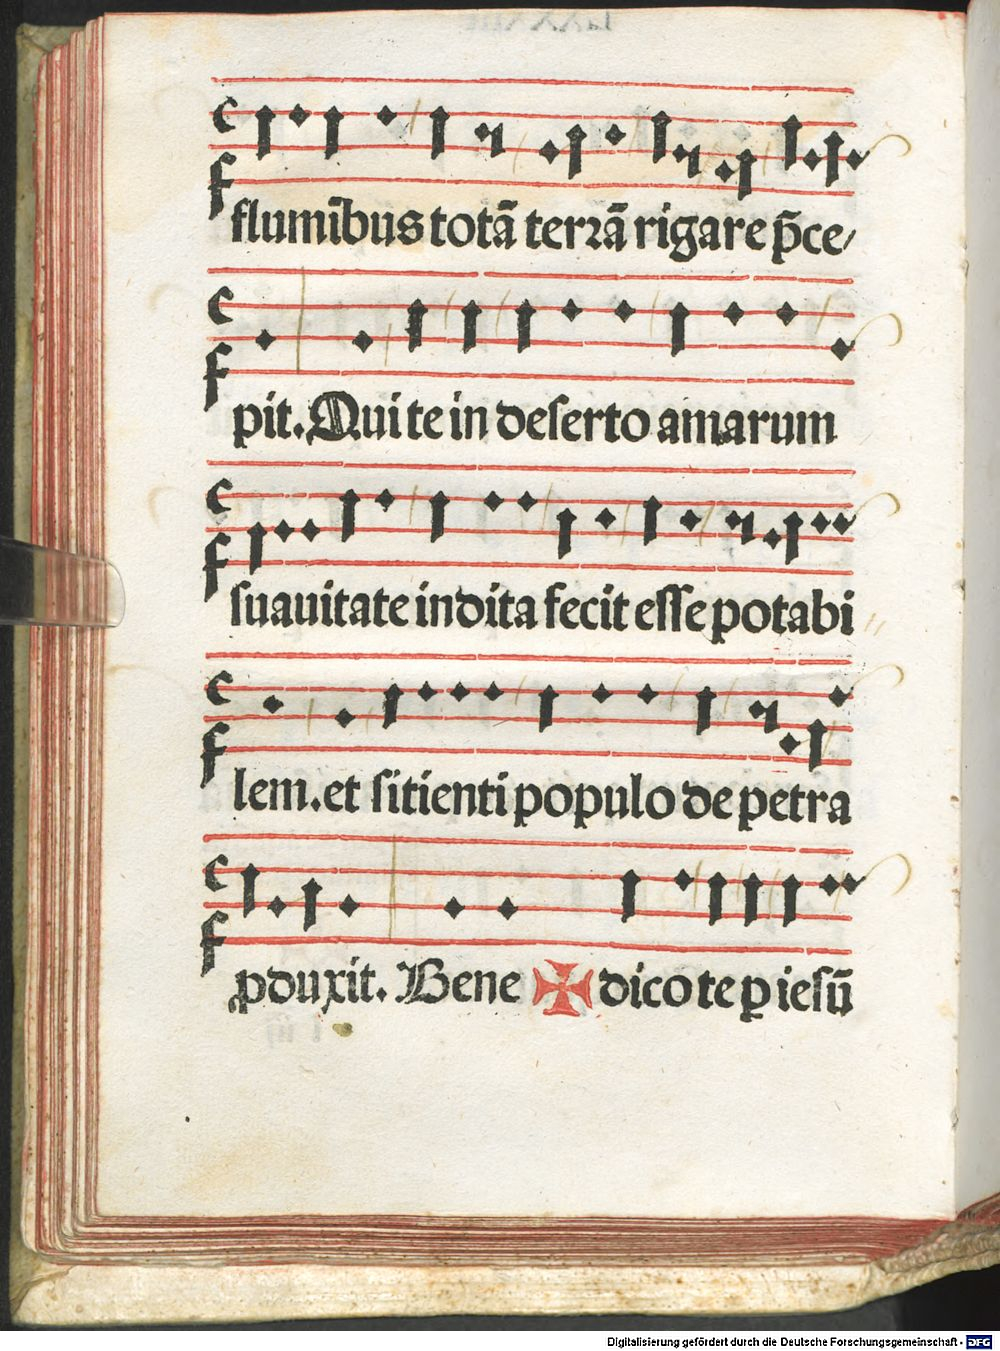 flumībus totā terrā rigare p̄ce/
pit. Qui te in deserto amarum
suauitate indita fecit esse potabi
lem. et sitienti populo de petra
ꝓduxit. Bene ✠ dico te ꝑ iesū
Digitalisierung gefördert durch die Deutsche Forschungsgemeinschaft - DFG